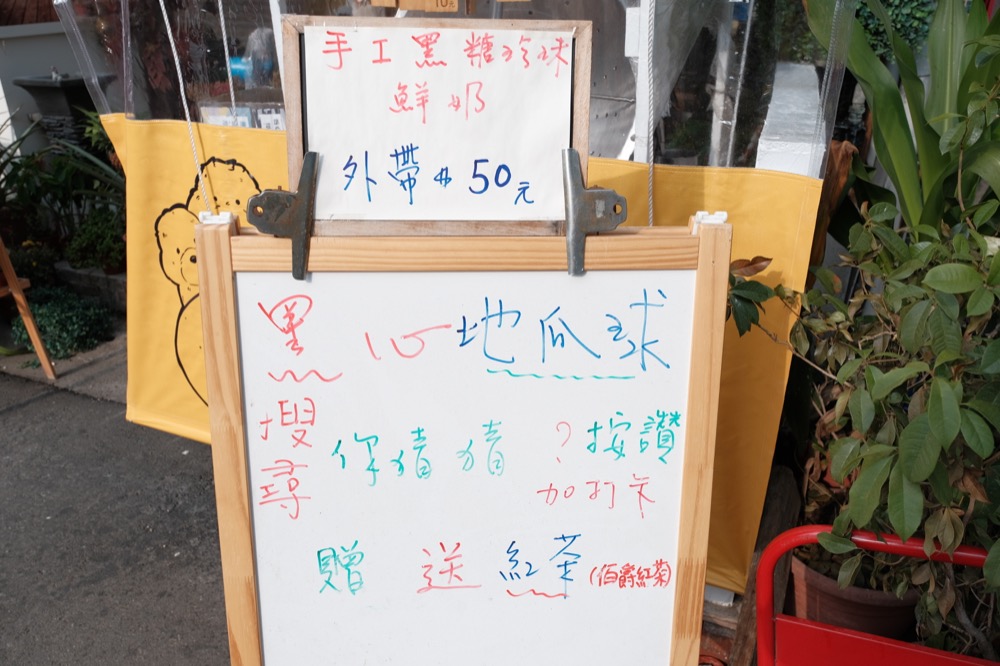 手工黑糖珍珠
鮮奶
外帶 $50元
黑心地瓜球
搜尋
你猜猜?按讚
加打卡
贈送紅茶(伯爵紅菊)